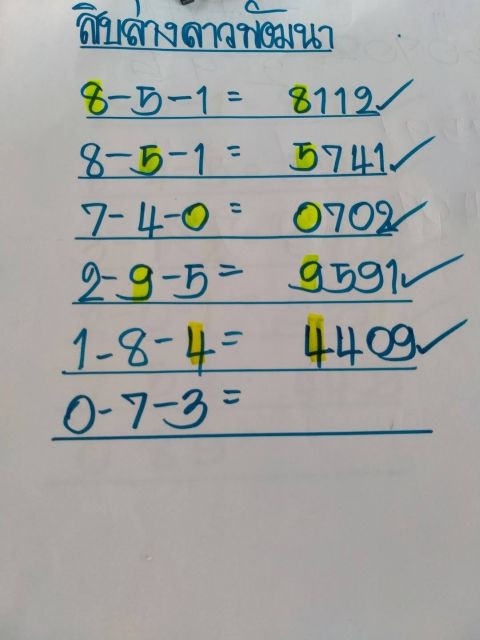 สิบล่างลาวพัฒนา
8-5-1 = 8112✓
8-5-1 = 5741✓
7-4-0 = 0702✓
2-9-5 = 9591✓
1-8-4 = 4409✓
0-7-3 =